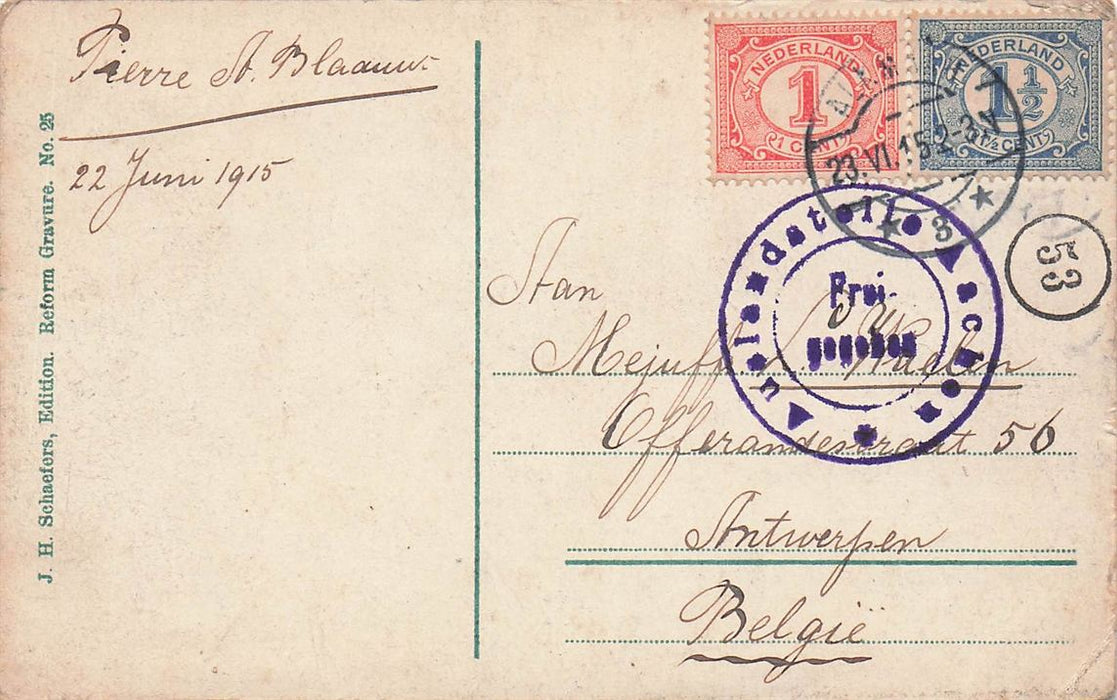 Pierre St. Blaauw
22 Juni 1915
J. H. Schaefers, Edition. Reform Gravure. No. 25
NEDERLAND
1
1 CENT
NEDERLAND
1 1/2
1 1/2 CENT
23.VI.15 2-3N
3
Auslandstelle Aachen
Frei-
gegeben
53
Aan
Mejuff
Offerandestraat 56
Antwerpen
België